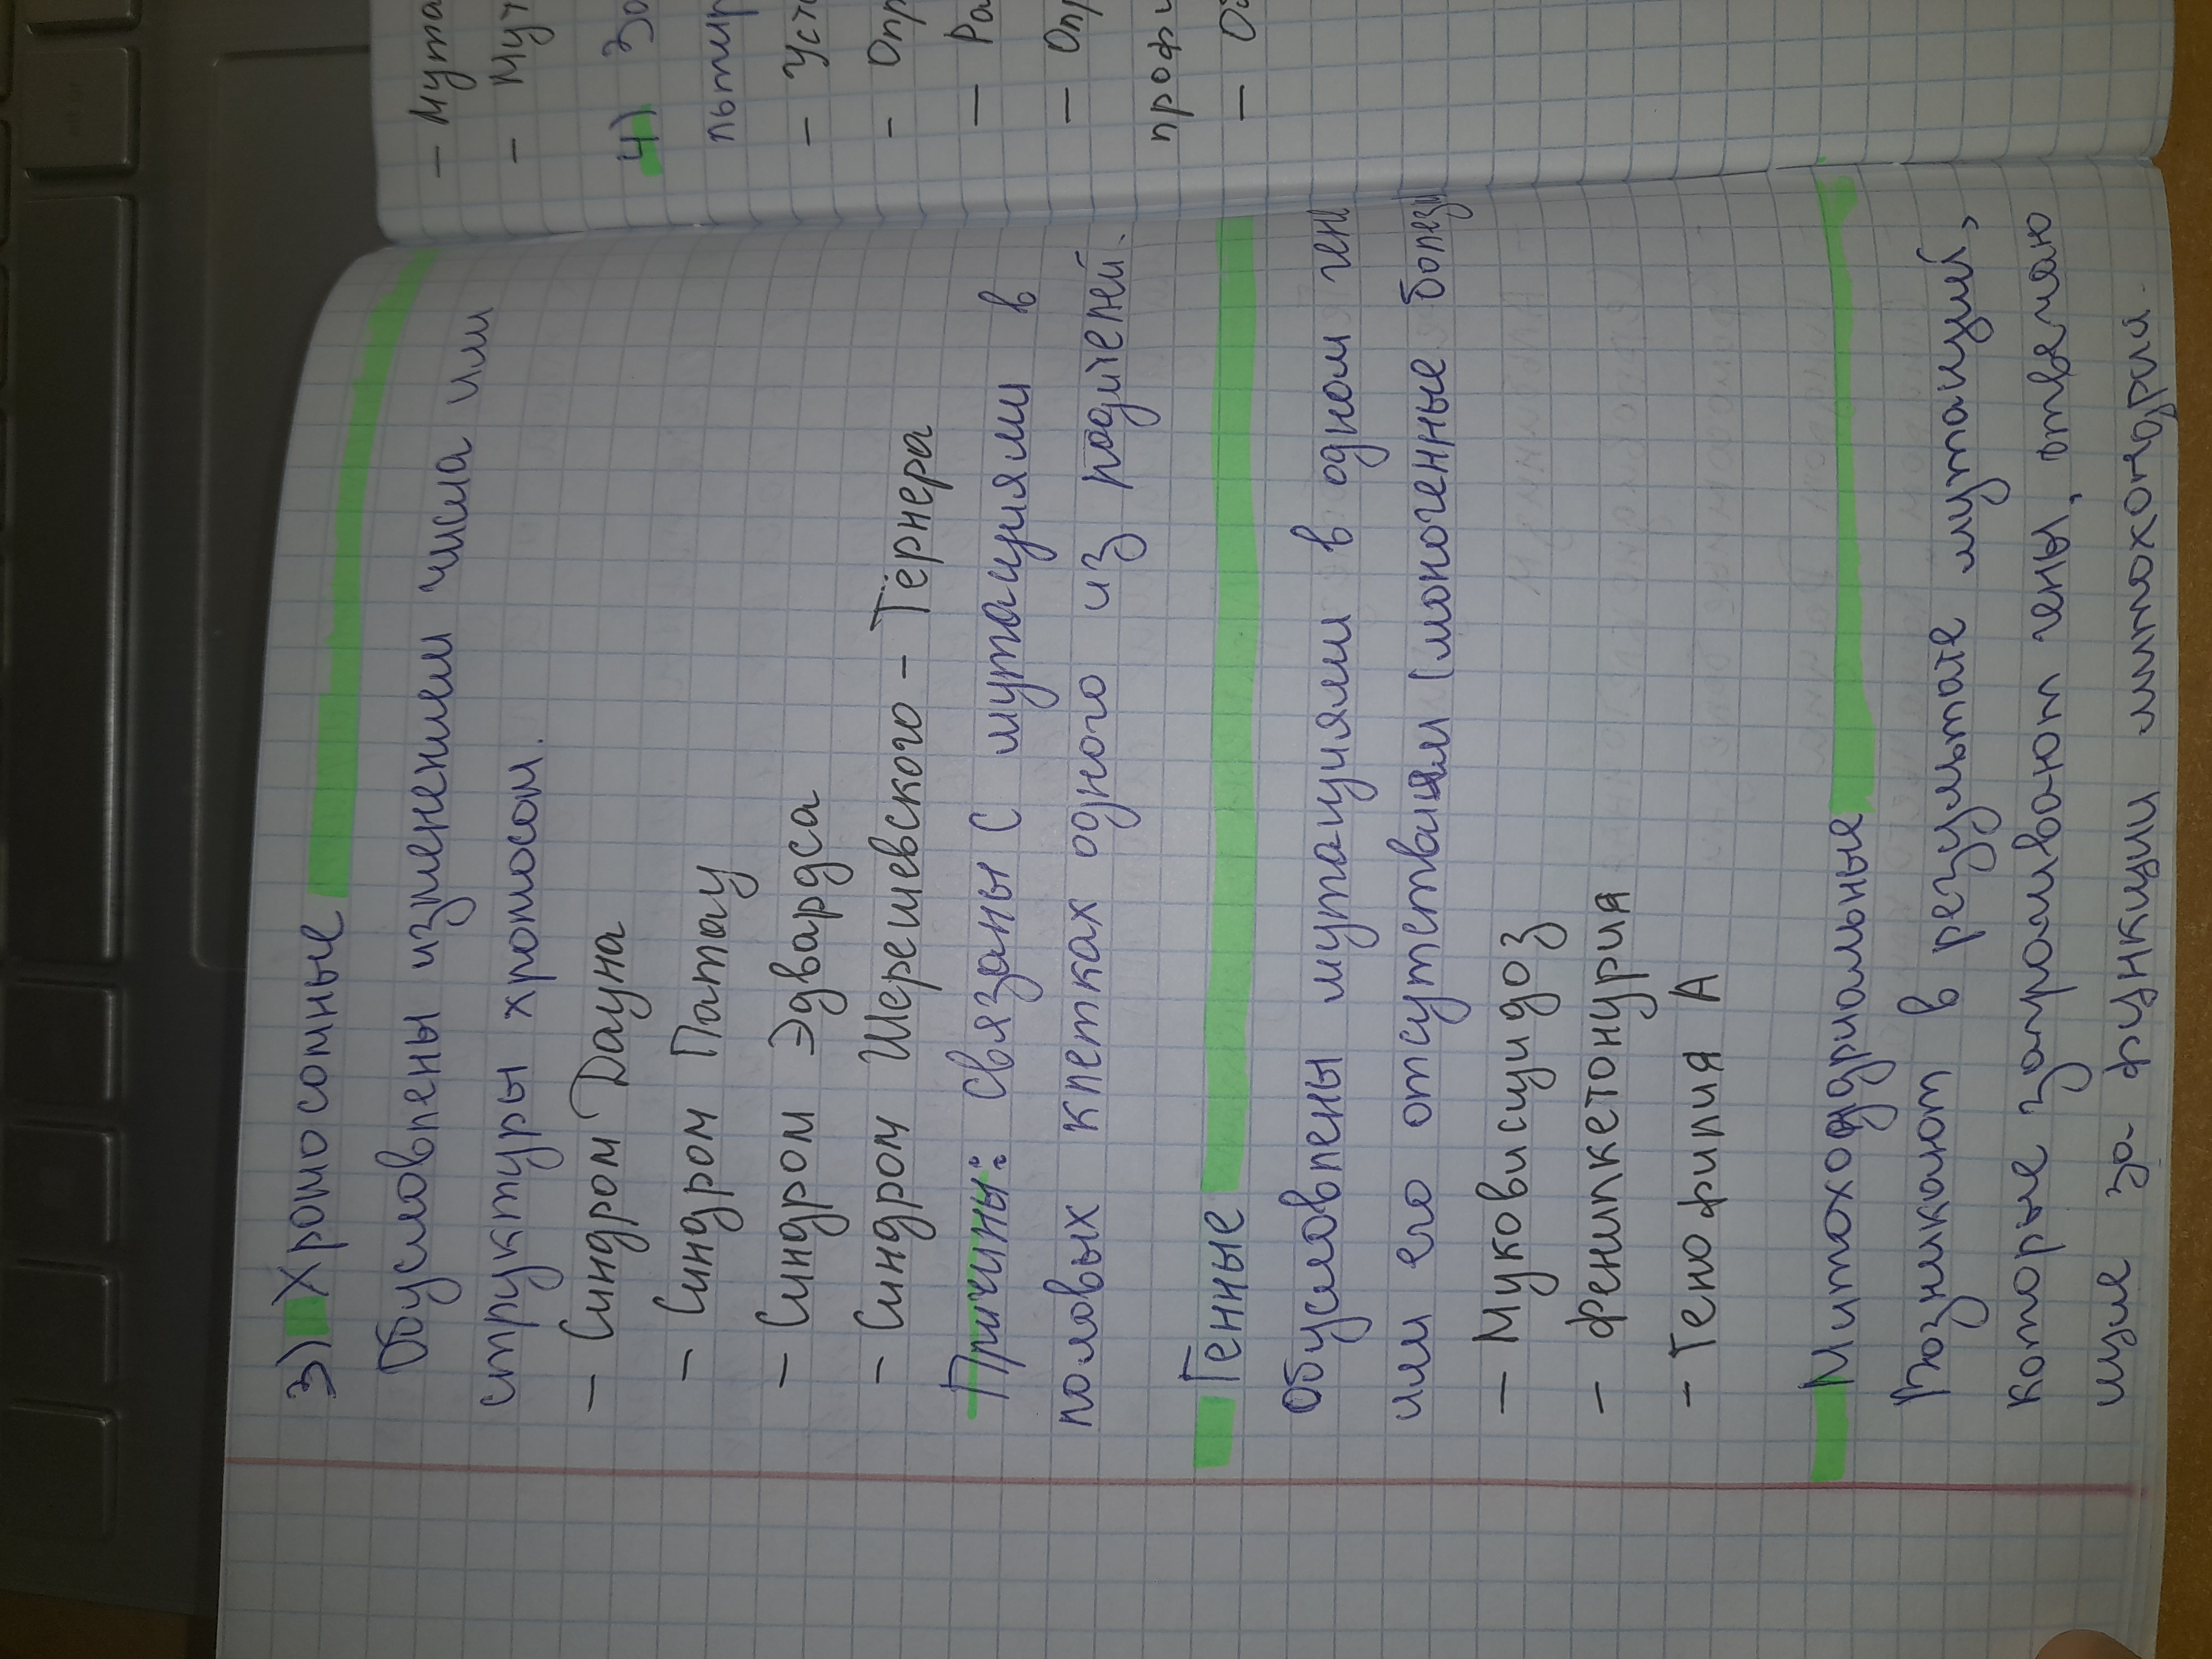 3) Хромосомные
Обусловлены изменением числа или
структуры хромосом.
- Синдром Дауна
- Синдром Патау
- Синдром Эдвардса
- Синдром Шерешевского - Тёрнера
Причины: связаны с мутациями в
половых клетках одного из родителей.
Генные
Обусловлены мутациями в одном ген
или его отсутствием (моногенные болезн
- Муковисцидоз
- фенилкетонурия
- Гемофилия А
Митохондриальные
Возникают в результате мутаций,
которые затрагивают гены, отвечаю
щие за функции митохондрии.
- Мута
- Мут
4) За
льтир
- Уст
- Опр
- Ра
- Опр
профи
-